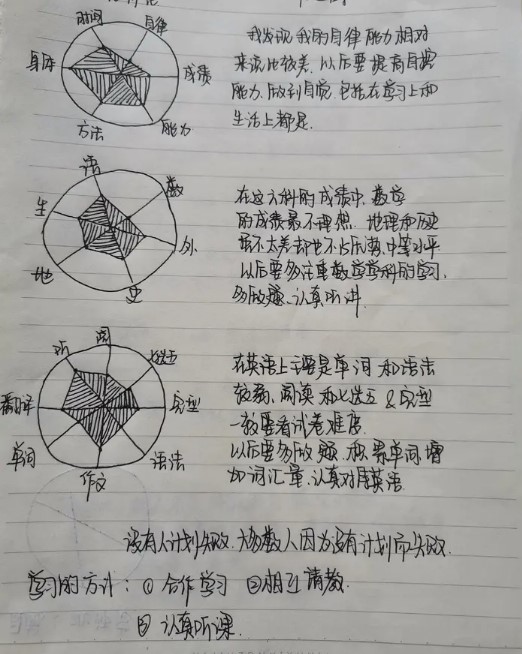 时间
自律
身体
成绩
方法
能力
我发现我的自律能力相对
来说比较差,以后要提高自控
能力,做到自觉,包括在学习上和
生活上都是.
语
数
生
外
地
史
在这六科的成绩中,数学
的成绩最不理想,地理和历史
虽不太差却也不占优势,中等水平
以后要多注重数学学科的学习,
多做题,认真听讲.
听
阅
七选五
翻译
完型
单词
语法
作文
在英语上主要是单词和语法
较弱,阅读和七选五&完型
一般要看试卷难度
以后要多做题,积累单词增
加词汇量,认真对待英语.
没有人计划失败,大多数人因为没有计划而失败.
学习的方计:① 合作学习 ②相互请教.
③ 认真听课.